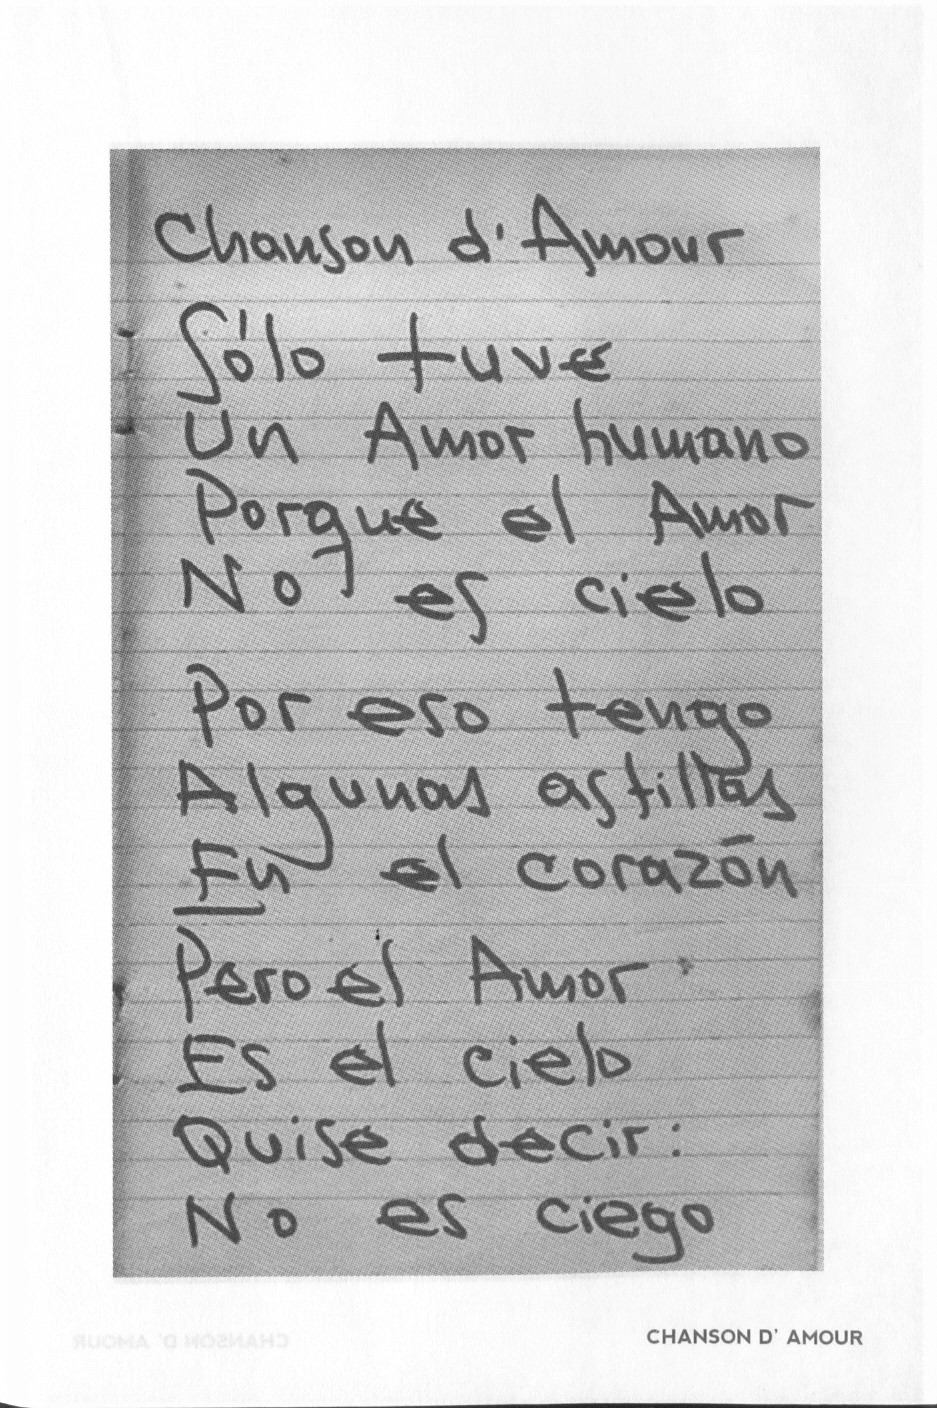 Chanson d'Amour
Sólo tuve
Un Amor humano
Porque el Amor
No es cielo
Por eso tengo
Algunas astillas
En el corazón
Pero el Amor
Es el cielo
Quise decir:
No es ciego
CHANSON D' AMOUR
CHANSON D' AMOUR